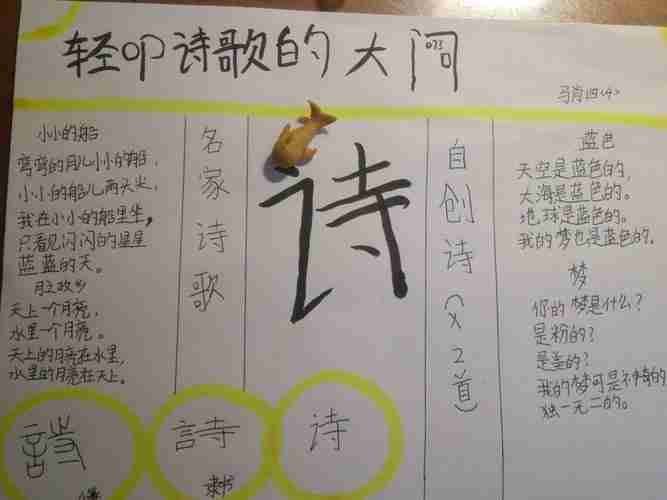 轻叩诗歌的大门
马肖四(4)
小小的船
弯弯的月儿小小的船,
小小的船儿两头尖,
我在小小的船里坐,
只看见闪闪的星星
蓝蓝的天。
月之故乡
天上一个月亮,
水里一个月亮。
天上的月亮在水里,
水里的月亮在天上。
名家诗歌
诗
自创诗(x2首)
蓝色
天空是蓝色的,
大海是蓝色的。
地球是蓝色的。
我的梦也是蓝色的。
梦
你的梦是什么?
是粉的?
是蓝的?
我的梦可是神奇的
独一无二的。
詩
詩
隶书
诗